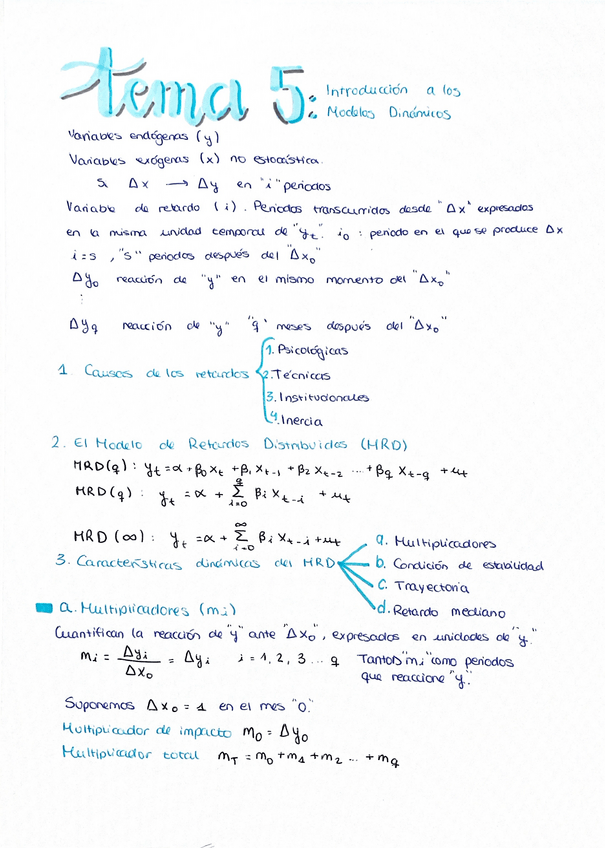 tema 5: Introducción a los
Modelos Dinámicos
Variables endógenas (y)
Variables exógenas (x) no estocástica.
Si Δx → Δy en "i" periodos
Variable de retardo (i). Periodos transcurridos desde "Δx" expresados
en la misma unidad temporal de "yt". i₀: periodo en el que se produce Δx
i=s, "s" periodos después del "Δx₀"
Δy₀ reacción de "y" en el mismo momento del "Δx₀"
⋮
Δyq reacción de "y" "q" meses después del "Δx₀"
1. Causas de los retardos
1. Psicológicas
2. Técnicas
3. Institucionales
4. Inercia
2. El Modelo de Retardos Distribuidos (MRD)
MRD(q): yt = α + β₀ Xt + β₁ Xt-1 + β2 Xt-2 ... + βq Xt-q + μt
MRD(q): yt = α + Σ(i=0, q) βi Xt-i + μt
MRD(∞): yt = α + Σ(i=0, ∞) βi Xt-i + μt
3. Características dinámicas del MRD
a. Multiplicadores
b. Condición de estabilidad
c. Trayectoria
d. Retardo mediano
a. Multiplicadores (mi)
Cuantifican la reacción de "y" ante "Δx₀", expresados en unidades de "y".
mi = Δyi / Δx₀ = Δyi i = 1, 2, 3 ... q Tantos "mi" como periodos
que reaccione "y".
Suponemos Δx₀ = 1 en el mes "0".
Multiplicador de impacto m₀ = Δy₀
Multiplicador total mT = m₀ + m1 + m2 ... + mq